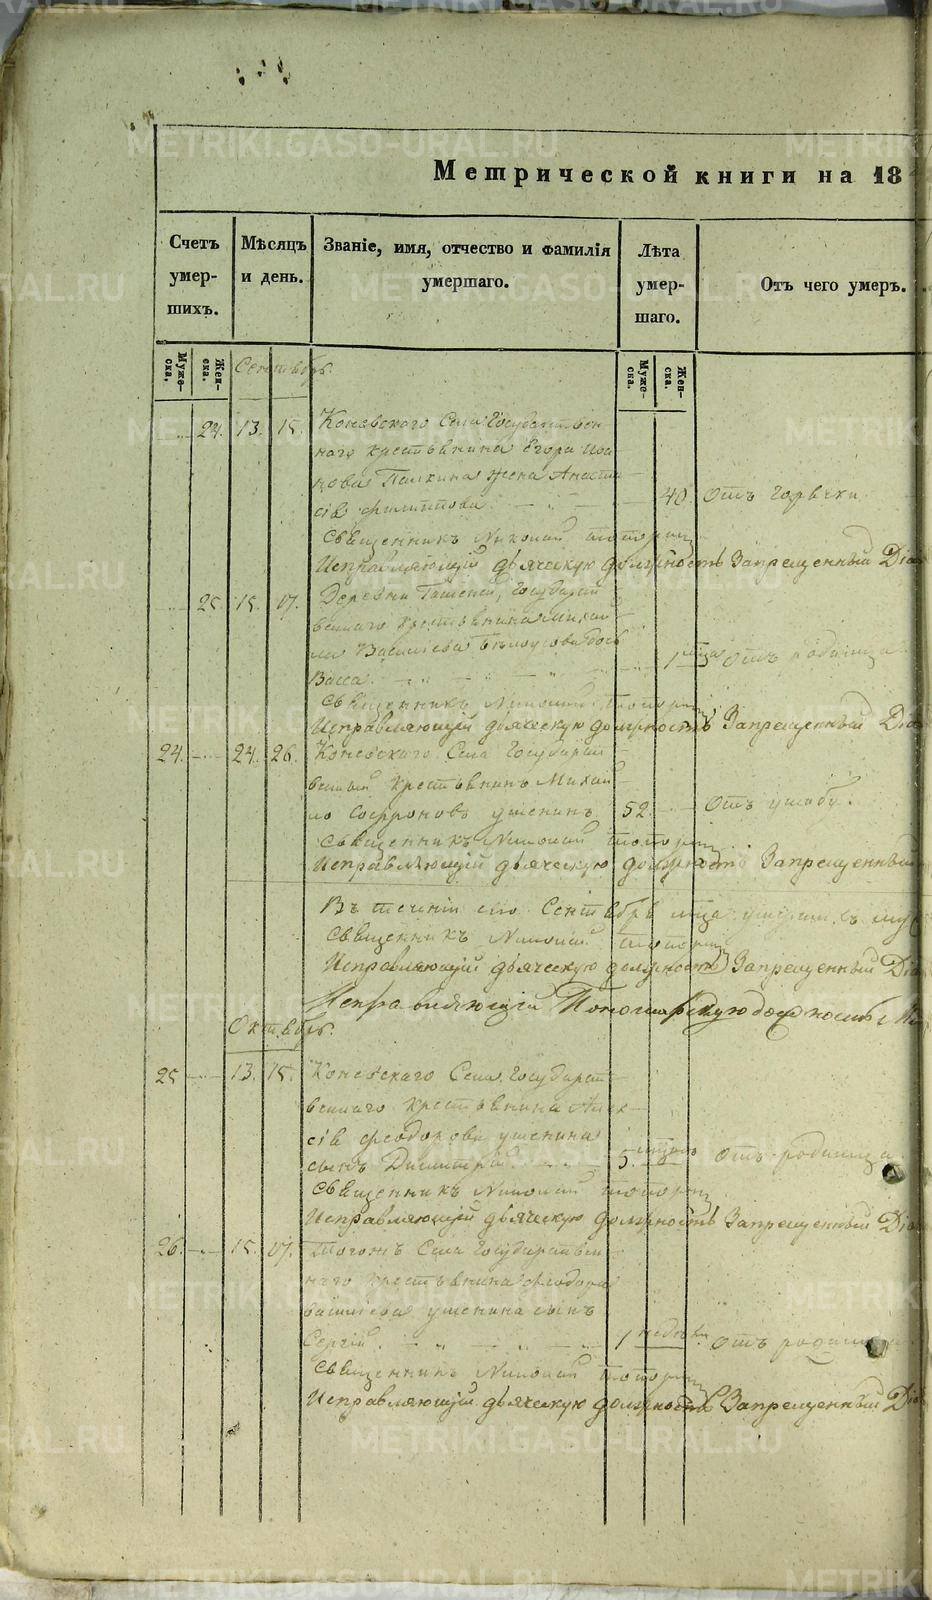 Метрической книги на 18
Счетъ умер- шихъ.
Мѣсяцъ и день.
Званіе, имя, отчество и фамилія умершаго.
Лѣта умер- шаго.
Отъ чего умеръ.
Муже- ска.
Жен- ска.
Муже- ска.
Жен- ска.
Сентябрь.
24. 13. 15. Коневского Села Государствен
наго крестьянина Егора Ива
нова Палкина жена Анаста
сія Филиппова 40 Отъ горячки
Священникъ Николай Топорин
Исправляющій дьяческую должность Запрещенный Діа
25. 15. 17. Деревни Государст
веннаго крестьянина Михаи
ла Васильева Бѣлоусова дочь
Васса 1 мѣца Отъ родимца.
Священникъ Николай Топорин
Исправляющій дьяческую должность Запрещенный Діа
24. 24. 26. Коневскаго Села Государст
венный крестьянинъ Михаи
ло Софроновъ Ушенинъ 52. Отъ ушибу.
Священникъ Николай Топорин
Исправляющій дьяческую должность Запрещенный
Въ теченіи сего Сентября мѣца
Священникъ Николай Топорин
Исправляющій дьяческую должность Запрещенный Діа
Исправляющій Пономарскую должность
Октябрь.
25 13. 15. Коневскаго Села Государст
веннаго крестьянина Алек
сія Феодорова Ушенина
сынъ Димитрій 5. Отъ родимца
Священникъ Николай Топорин
Исправляющій дьяческую должность Запрещенный Діа
26. 15. 17. Тогожъ Села Государствен
наго крестьянина Феодора
Васильева Ушенина сынъ
Сергій 1 недѣли Отъ родимца
Священникъ Николай Топорин
Исправляющій дьяческую должность Запрещенный Діа
METRIKI.GASO-URAL.RU